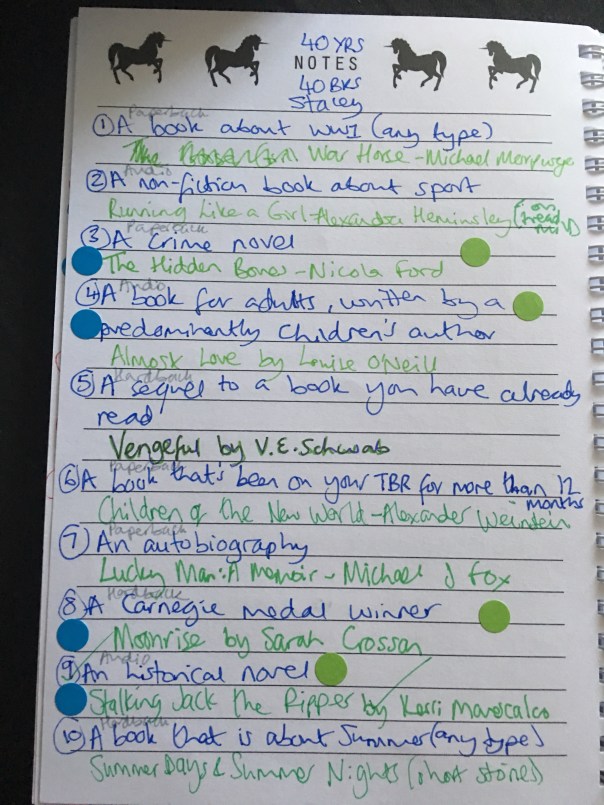 40 YRS
NOTES
40 BKS
Stacey
Paperback
① A book about WW1 (any type)
The War Horse - Michael Morpurgo
Audio
② A non-fiction book about sport
Running Like a Girl - Alexandra Heminsley (on
Paperback
③ A crime novel
The Hidden Bones - Nicola Ford
Audio
④ A book for adults, written by a
predominantly children's author
Almost Love by Louise O'Neill
Hardback
⑤ A sequel to a book you have already
read
Vengeful by V.E. Schwab
Paperback
⑥ A book that's been on your TBR for more than 12
months
Children of the New World - Alexander Weinstein
Paperback
⑦ An autobiography
Lucky Man: A Memoir - Michael J Fox
Hardback
⑧ A Carnegie medal winner
Moonrise by Sarah Crossan
Audio
⑨ An historical novel
Stalking Jack the Ripper by Kerri Maniscalco
Hardback
⑩ A book that is about Summer (any type)
Summer Days & Summer Nights (short stories)